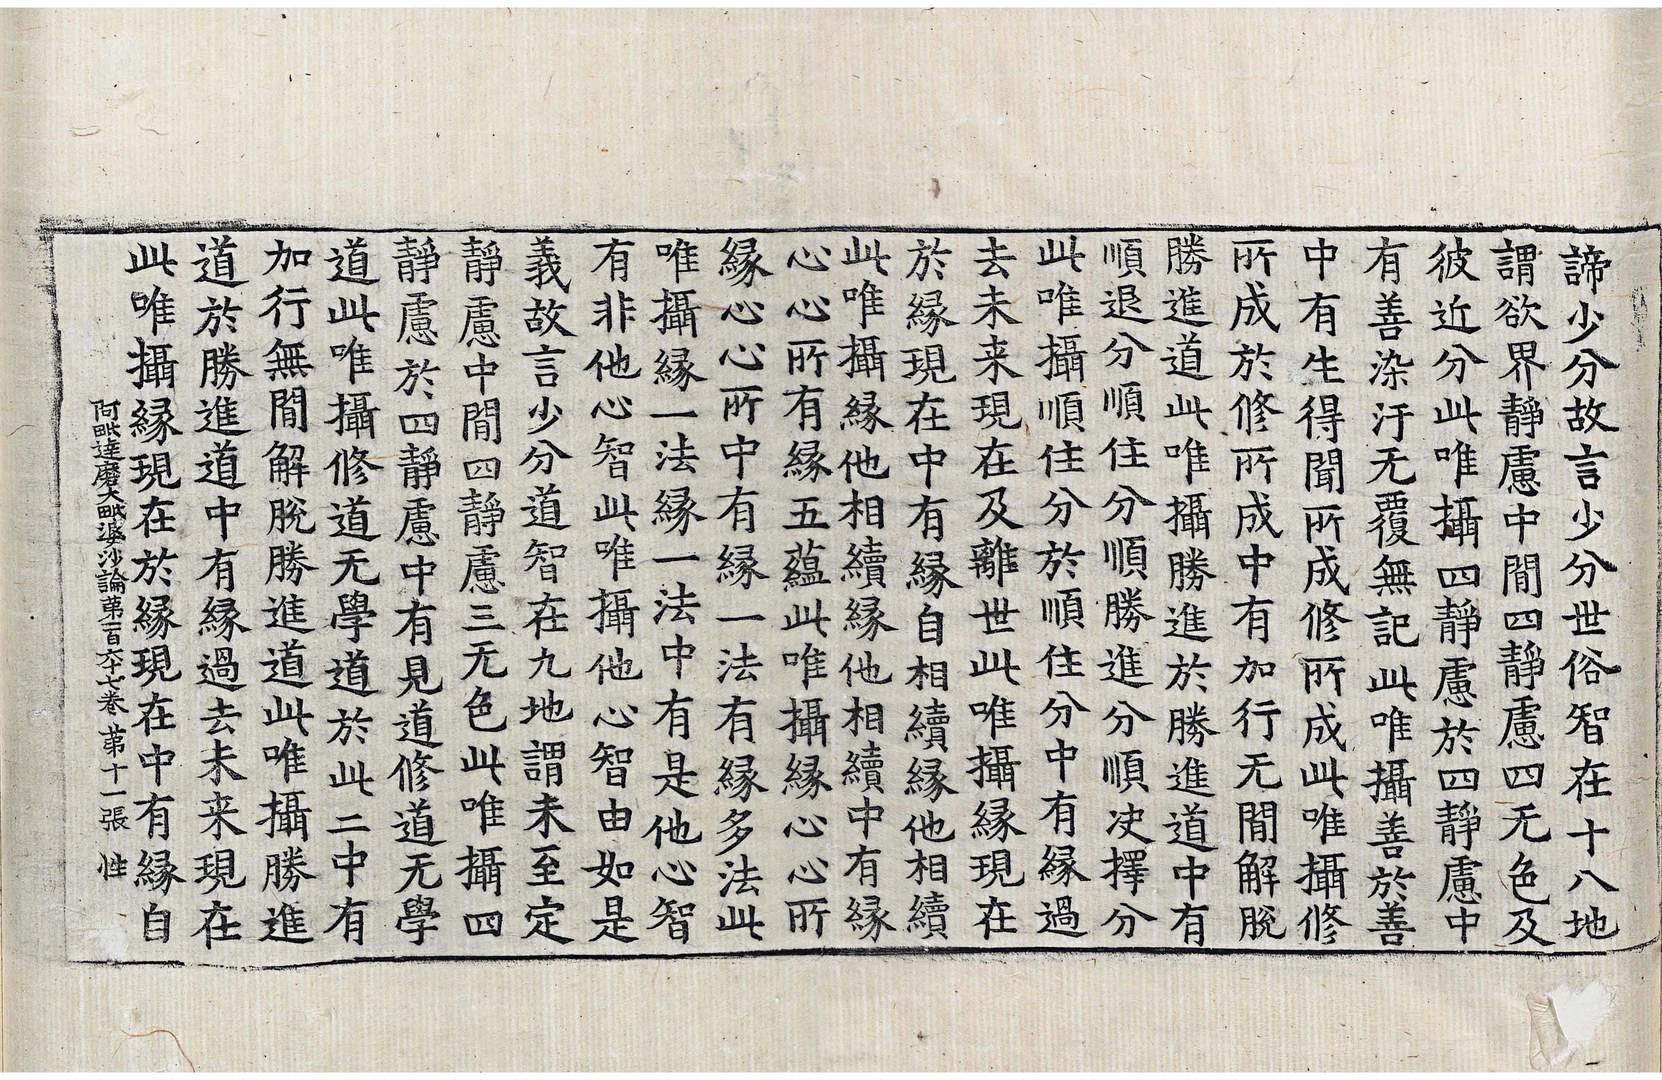 諦少分故言少分世俗智在十八地
謂欲界靜慮中間四靜慮四无色及
彼近分此唯攝四靜慮於四靜慮中
有善染汙无覆無記此唯攝善於善
中有生得聞所成修所成此唯攝修
所成於修所成中有加行无間解脫
勝進道此唯攝勝進於勝進道中有
順退分順住分順勝進分順决擇分
此唯攝順住分於順住分中有緣過
去未来現在及離世此唯攝緣現在
於緣現在中有緣自相續緣他相續
此唯攝緣他相續緣他相續中有緣
心心所有緣五蘊此唯攝緣心心所
緣心心所中有緣一法有緣多法此
唯攝緣一法緣一法中有是他心智
有非他心智此唯攝他心智由如是
義故言少分道智在九地謂未至定
靜慮中間四靜慮三无色此唯攝四
靜慮於四靜慮中有見道修道无學
道此唯攝修道无學道於此二中有
加行無間解脫勝進道此唯攝勝進
道於勝進道中有緣過去未来現在
此唯攝緣現在於緣現在中有緣自
阿毗達磨大毗婆沙論苐一百六十七卷 苐十一張 性